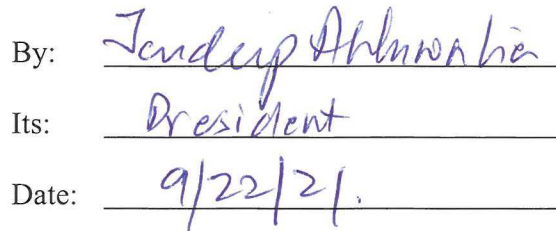 By: Jandeep Ahluwalia
Its: President
Date: 9/22/21.